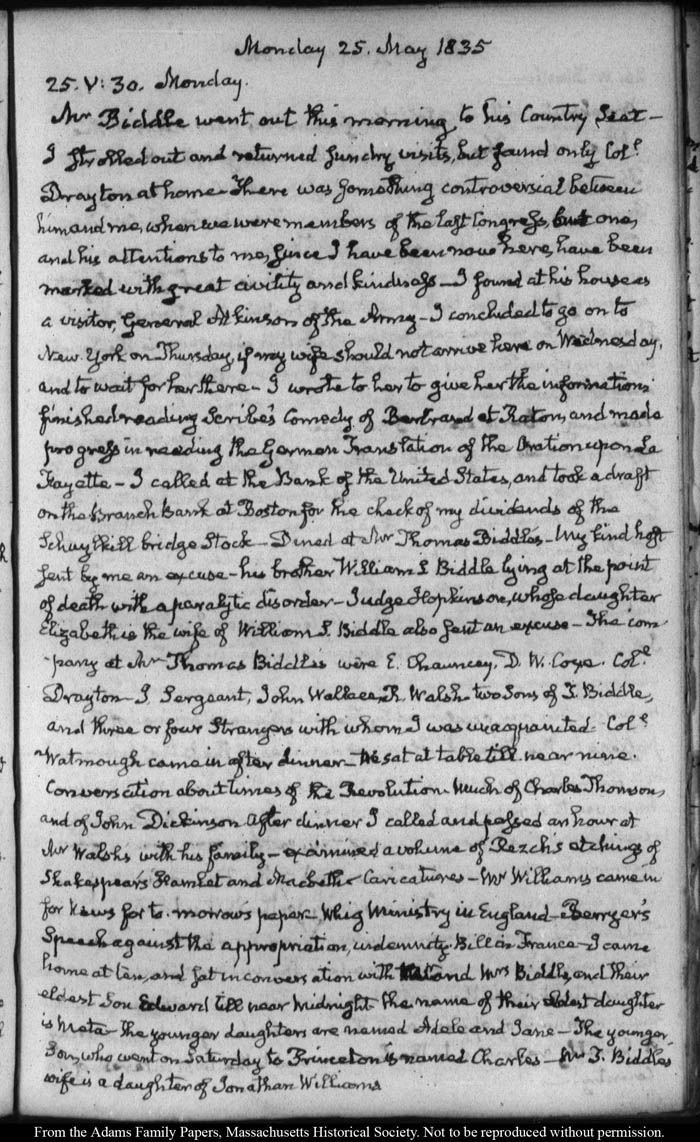 Monday 25. May 1835
25. V: 30. Monday.
Mr Biddle went out this morning to his Country Seat—
I strolled out and returned sundry visits, but found only Col.l
Drayton at home— There was something controversial between
him and me, when we were members of the last Congress, but one,
and his attentions to me, since I have been now here, have been
marked with great civility and kindness— I found at his house as
a visitor, General Atkinson of the Army— I concluded to go on to
New-York on Thursday, if my wife should not arrive here on Wednesday,
and to wait for her there— I wrote to her to give her the information
finished reading Scribe's Comedy of Bertrand et Raton, and made
progress in reading the German Translation of the Oration upon La
Fayette— I called at the Bank of the United States, and took a draft
on the Branch Bank at Boston for the check of my dividends of the
Schuylkill bridge Stock— Dined at Mr Thomas Biddle's— My kind host
sent by me an excuse— his brother William S Biddle lying at the point
of death with a paralytic disorder— Judge Hopkinson, whose daughter
Elizabeth is the wife of William S. Biddle also sent an excuse— The com-
-pany at Mr Thomas Biddle's were E. Chauncey, D. W. Coxe. Col.l
Drayton— J. Sergeant, John Wallace, R. Walsh two Sons of T. Biddle,
and three or four Strangers with whom I was unacquainted. Col.l
Watmough came in after dinner— We sat at table till near nine.
Conversation about times of the Revolution. Much of Charles Thomson,
and of John Dickinson after dinner I called and passed an hour at
Mr Walsh's with his family— examined a volume of Rezch's etchings of
Shakespear's Hamlet and Macbeth— Caricatures— Mr Williams came in
for News for to-morrow's paper. Whig Ministry in England— Berryer's
Speech against the appropriation, indemnity Bill in France— I came
home at ten, and sat in conversation with Mr and Mrs Biddle, and their
eldest Son Edward till near midnight the name of their eldest daughter
is Meta— The younger daughters are named Adele and Jane— The younger
Son, who went on Saturday to Princeton is named Charles— Mr T. Biddle's
wife is a daughter of Jonathan Williams
From the Adams Family Papers, Massachusetts Historical Society. Not to be reproduced without permission.